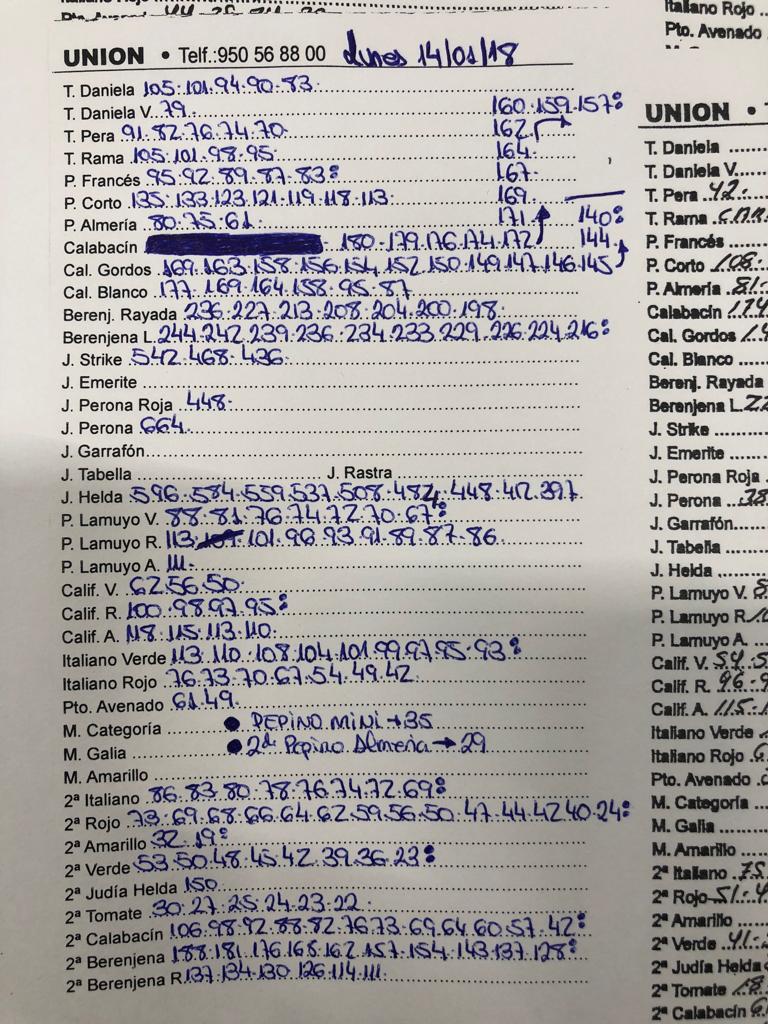 UNION • Telf.: 950 56 88 00 Lunes 14/01/18
T. Daniela 105·101·94·90·83·
T. Daniela V. 79· 160·159·157:
T. Pera 91·82·76·74·70· 162
T. Rama 105·101·98·95· 164·
P. Francés 95·92·89·87·83: 167·
P. Corto 135·133·123·121·119·118·113· 169·
P. Almería 80·75·61· 171· 140:
Calabacín 180·179·176·174·172 144·
Cal. Gordos 169·163·158·156·154·152·150·149·147·146·145
Cal. Blanco 177·169·164·158·95·87·
Berenj. Rayada 236·227·213·208·204·200·198·
Berenjena L. 244·242·239·236·234·233·229·226·224·216:
J. Strike 542·468·436·
J. Emerite
J. Perona Roja 448·
J. Perona 664·
J. Garrafón
J. Tabella J. Rastra
J. Helda 596·584·559·537·508·482·448·412·397·
P. Lamuyo V. 88·81·76·74·72·70·67:
P. Lamuyo R. 113· 101·96·93·91·89·87·86·
P. Lamuyo A. 111·
Calif. V. 62·56·50·
Calif. R. 100·98·97·95:
Calif. A. 118·115·113·110·
Italiano Verde 113·110·108·104·101·99·97·95·93:
Italiano Rojo 76·73·70·67·54·49·42
Pto. Avenado 61·49·
M. Categoría • PEPINO MINI → 35
M. Galia • 2ª Pepino Almeria → 29
M. Amarillo
2ª Italiano 86·83·80·78·76·74·72·69:
2ª Rojo 73·69·68·66·64·62·59·56·50·47·44·42·40·24:
2ª Amarillo 32·19:
2ª Verde 53·50·48·45·42·39·36·23:
2ª Judía Helda 150
2ª Tomate 30·27·25·24·23·22·
2ª Calabacín 106·98·92·88·82·76·73·69·64·60·57·42:
2ª Berenjena 188·181·176·168·162·157·154·143·137·128:
2ª Berenjena R. 137·134·130·126·114·111·
Italiano Rojo
Pto. Avenado
UNION •
T. Daniela
T. Daniela V.
T. Pera 42·
T. Rama
P. Francés
P. Corto 108·
P. Almería 81·
Calabacín 174
Cal. Gordos
Cal. Blanco
Berenj. Rayada
Berenjena L.
J. Strike
J. Emerite
J. Perona Roja
J. Perona
J. Garrafón
J. Tabella
J. Helda
P. Lamuyo V.
P. Lamuyo R.
P. Lamuyo A.
Calif. V. 54·5
Calif. R. 96·9
Calif. A. 115·1
Italiano Verde
Italiano Rojo
Pto. Avenado
M. Categoría
M. Galia
M. Amarillo
2ª Italiano 75
2ª Rojo 51·4
2ª Amarillo
2ª Verde 41·
2ª Judía Helda
2ª Tomate 18·
2ª Calabacín